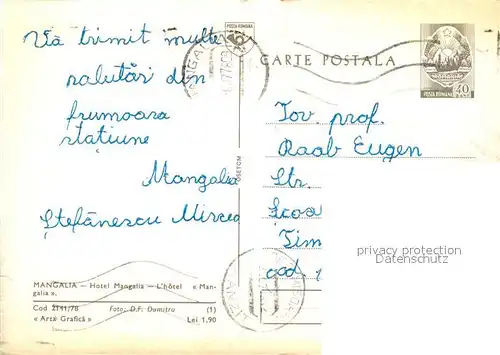 Vă trimit multe
salutări din
frumoasa
stațiune
Mangalia
Ștefănescu Mircea
POSTA ROMANA
CARTE POSTALA
POSTA ROMANA
40
Tov. prof.
Raab Eugen
Str.
Scoa
Tim
cod.
privacy protection
Datenschutz
MANGALIA — Hotel Mangalia — L'hôtel « Man-
galia ».
Cod 2141/78 Foto: D.F. Dumitru (1)
« Arta Grafică » Lei 1,90